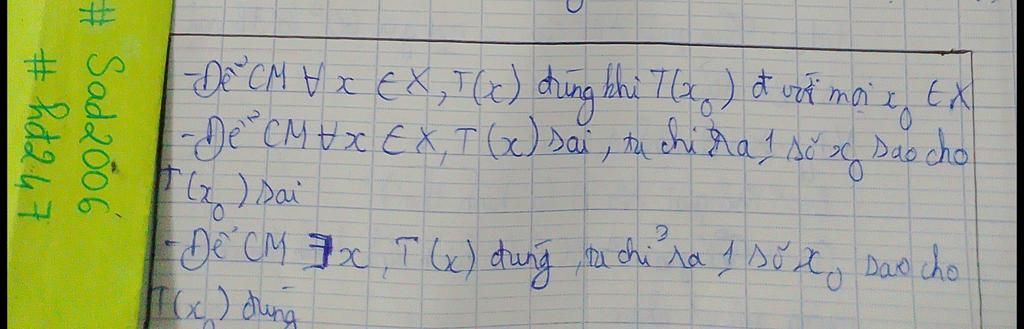 # Sad2006
# hd247
-Để CM ∀ x ∈ X, T(x) đúng khi T(x₀) đ với mọi x₀ ∈ X
-Để CM ∀ x ∈ X, T(x) sai, ta chỉ ra 1 số x₀ sao cho
T(x₀) sai
-Để CM ∃x, T(x) đúng, ta chỉ ra 1 số x₀ sao cho
T(x₀) đúng